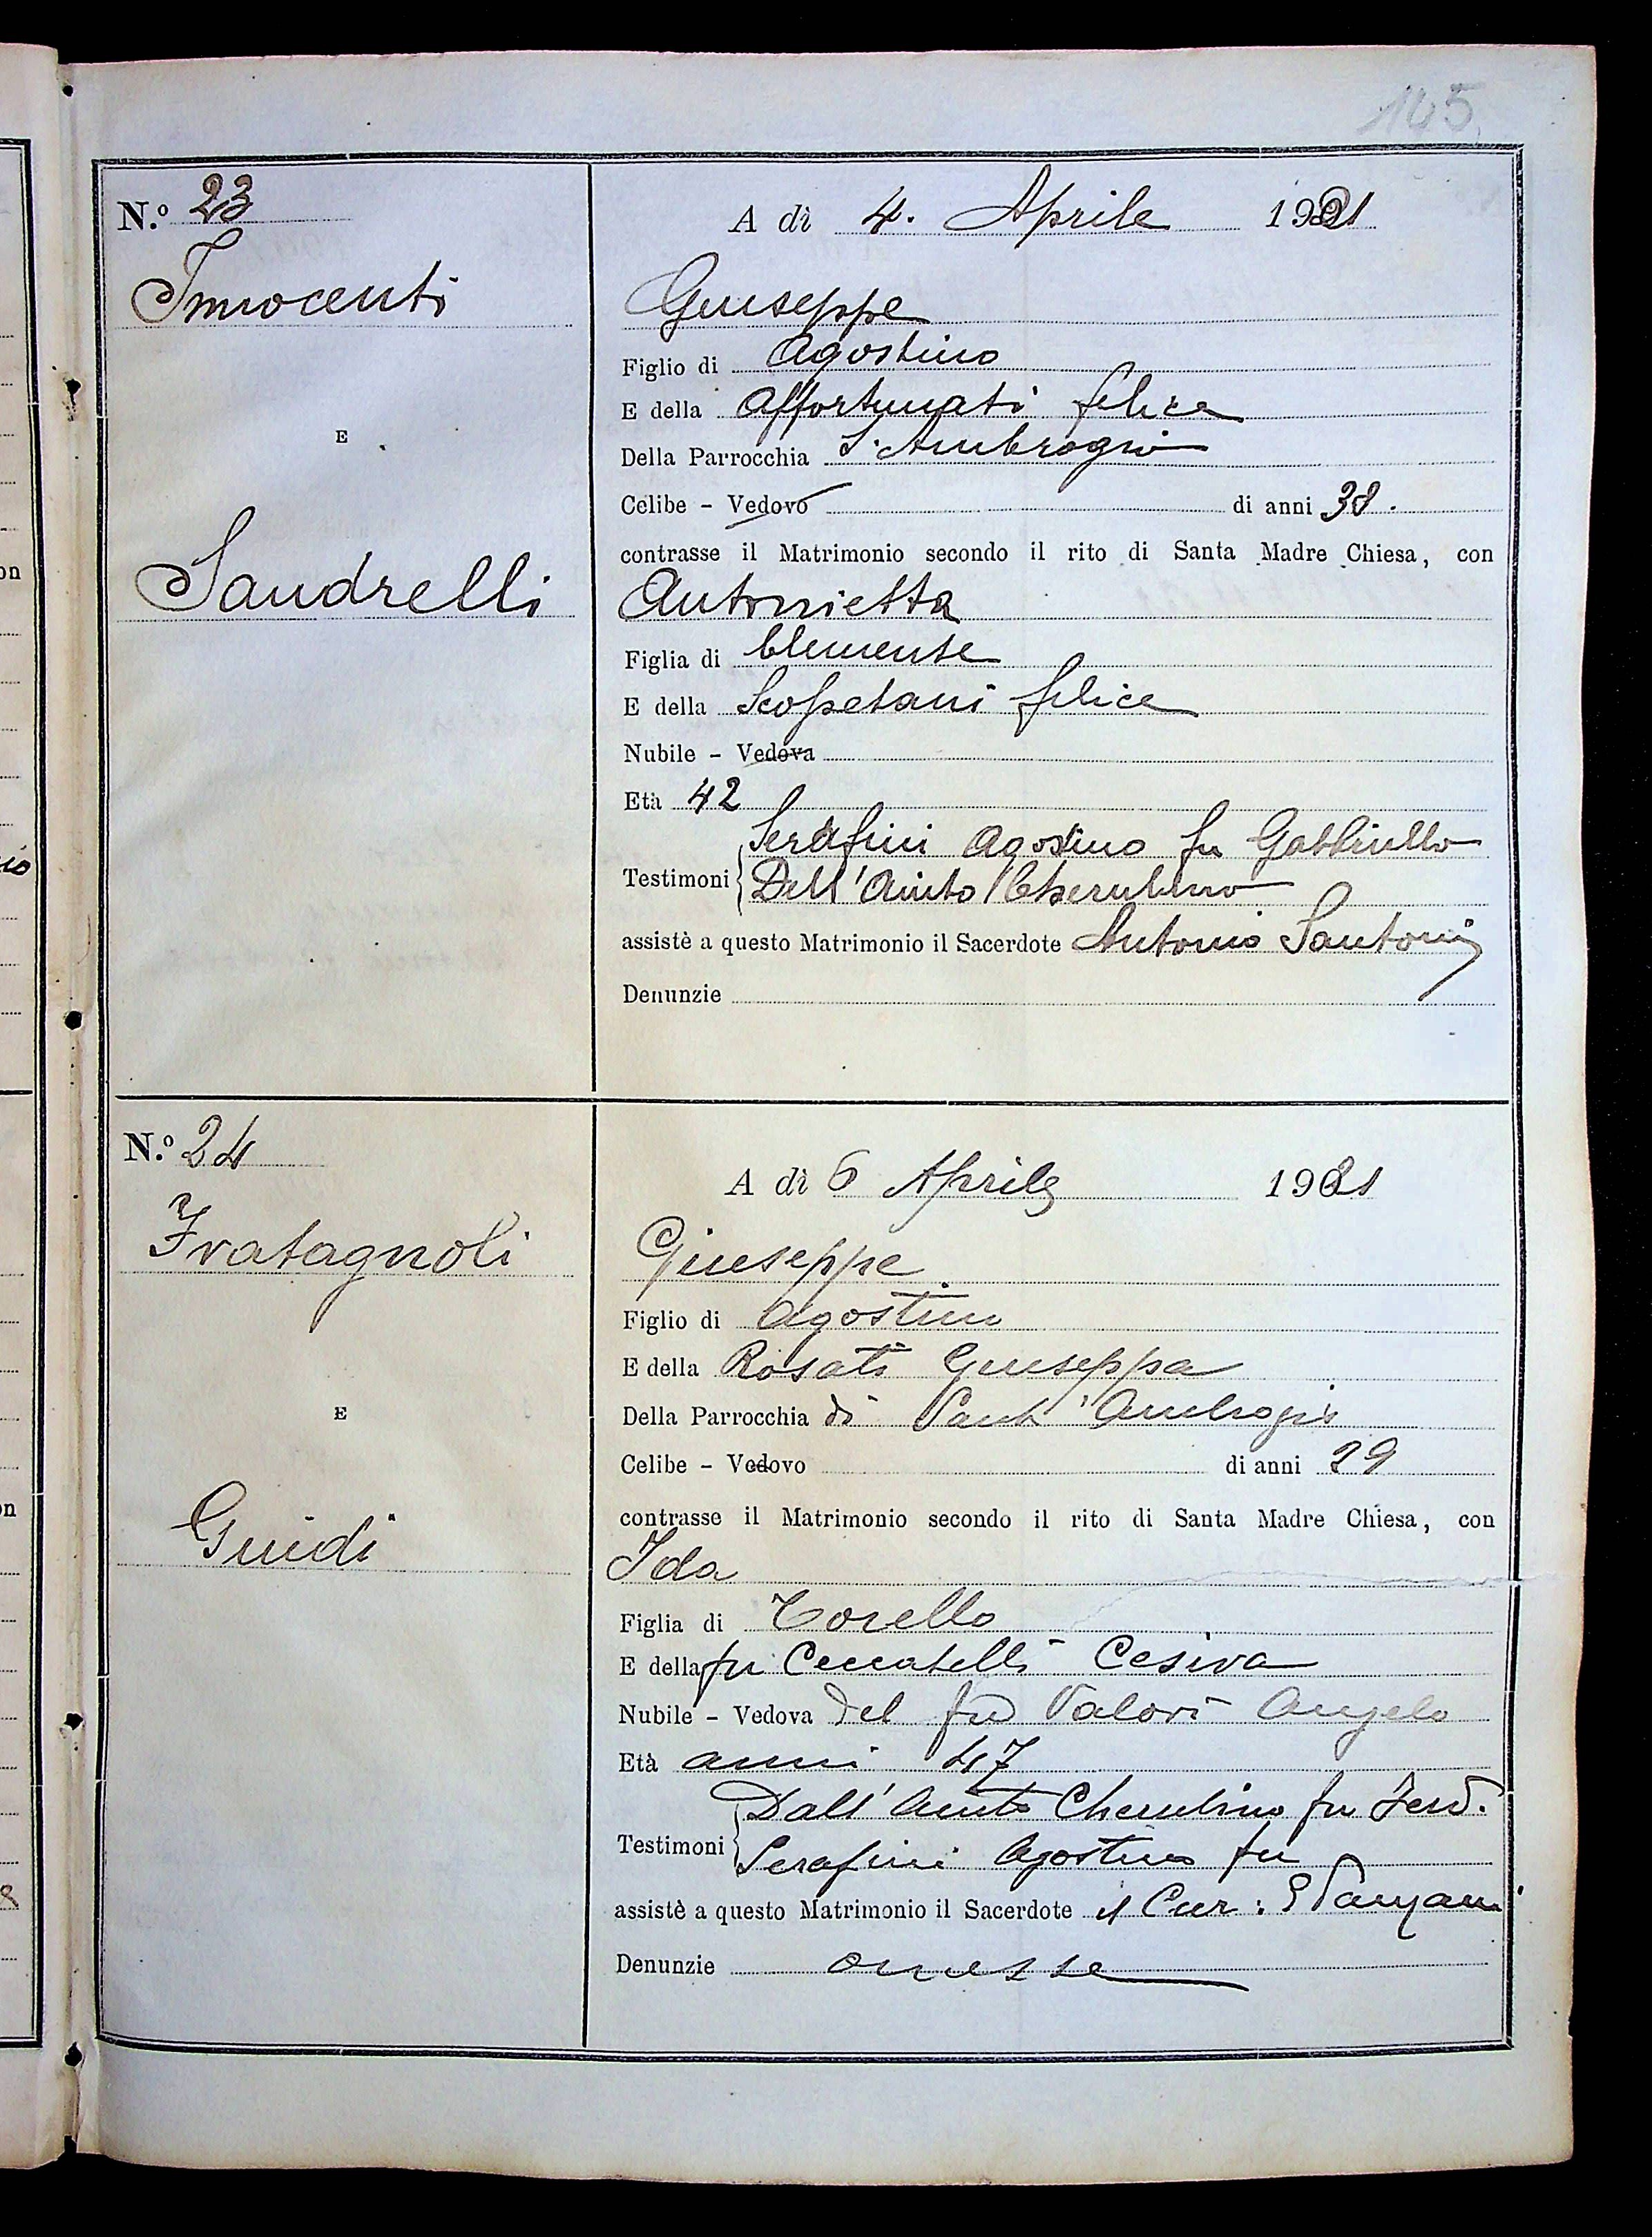 145
N.º 23
A dì 4. Aprile 1921
Innocenti
Giuseppe
Figlio di Agostino
E della Affortunati felice
E
Della Parrocchia S. Ambrogio
Celibe - Vedovo di anni 38.
contrasse il Matrimonio secondo il rito di Santa Madre Chiesa, con
Sandrelli
Antonietta
Figlia di Clemente
E della Scopetani felice
Nubile - Vedova
Età 42
Serafini Agostino fu Gabbriello
Testimoni Dell'Aiuto Cherubino
assistè a questo Matrimonio il Sacerdote Antonio Santoni
Denunzie
N.º 24
A dì 6 Aprile 1921
Fratagnoli
Giuseppe
Figlio di Agostino
E della Rosati Giuseppa
E
Della Parrocchia di Sant'Ambrogio
Celibe - Vedovo di anni 29
contrasse il Matrimonio secondo il rito di Santa Madre Chiesa, con
Guidi
Ida
Figlia di Torello
E della fu Ceccatelli Cesira
Nubile - Vedova del fu Valori Angelo
Età anni 47
Dall'Aiuto Cherubino fu Ferd.
Testimoni
Serafini Agostino fu
assistè a questo Matrimonio il Sacerdote il Cur:
Denunzie omesse